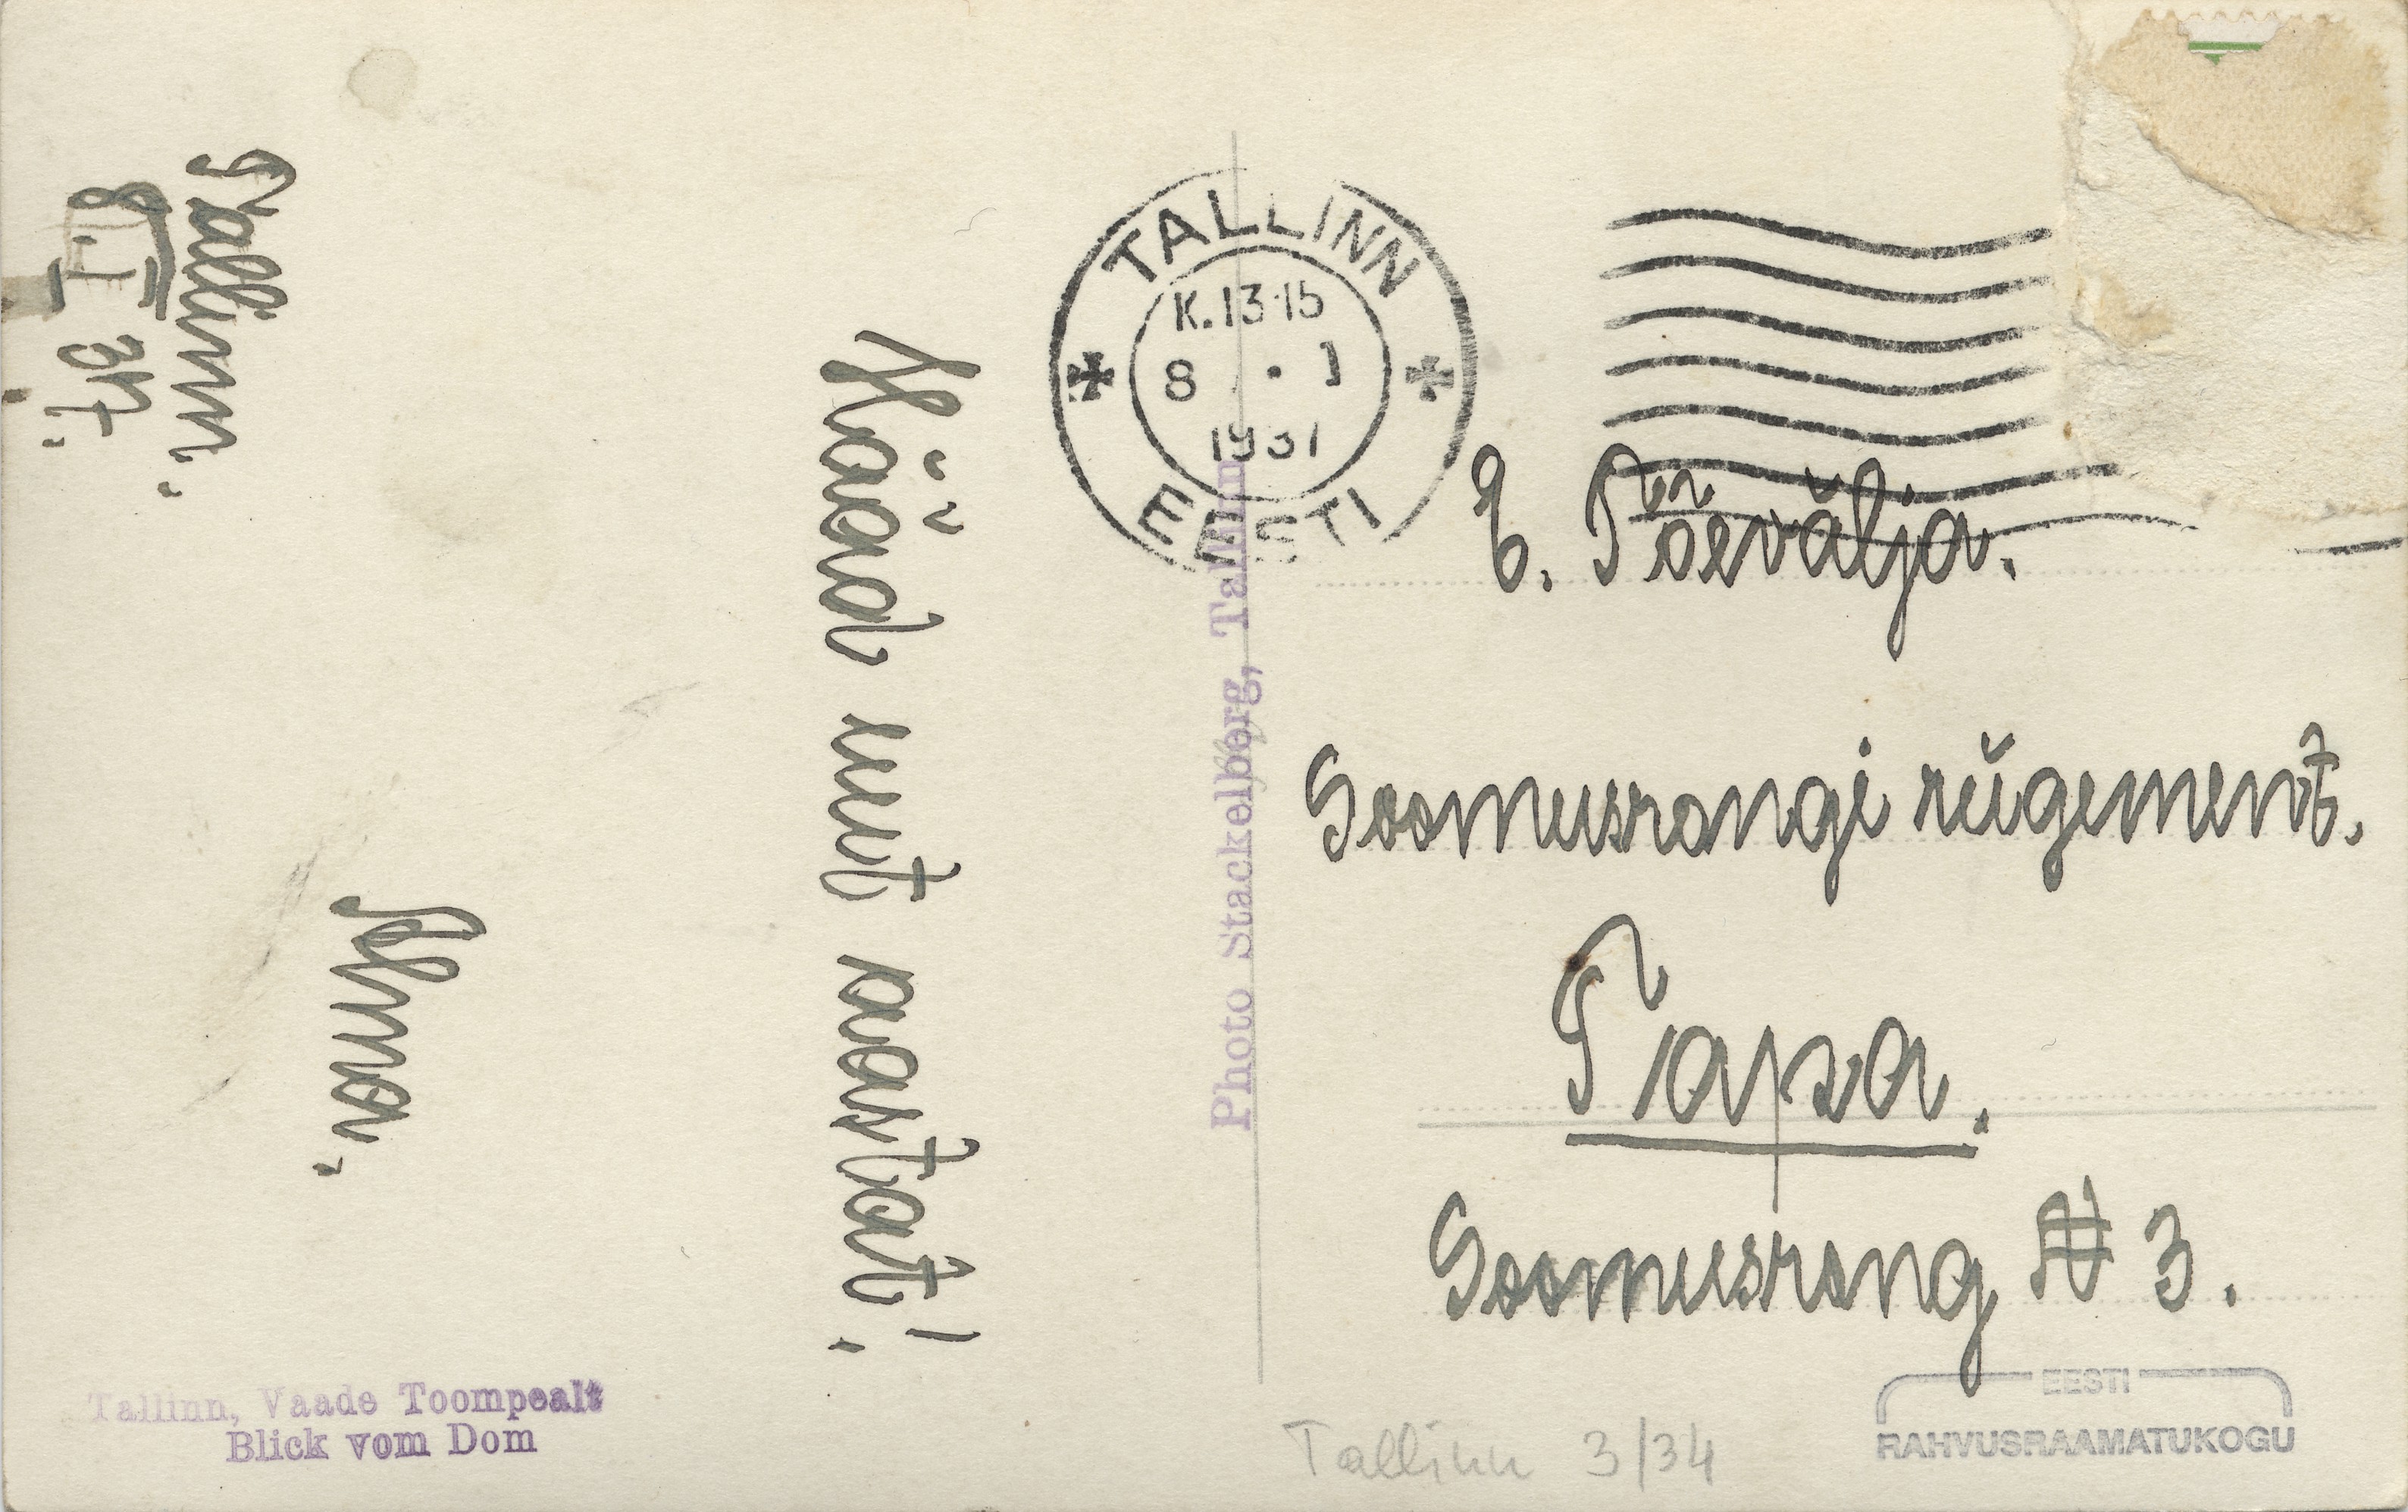 Tallinn.
8. I 37.
Hääd uut aastat!
Alma.
TALLINN
K.13-15
8 . 1
1937
EESTI
Photo Stackelberg, Tallinn
E. Põevälja.
Soomusrongi rügement.
Tapa.
Soomusrong N 3.
Tallinn, Vaade Toompealt
Blick vom Dom
Tallinn 3/34
EESTI
RAHVUSRAAMATUKOGU